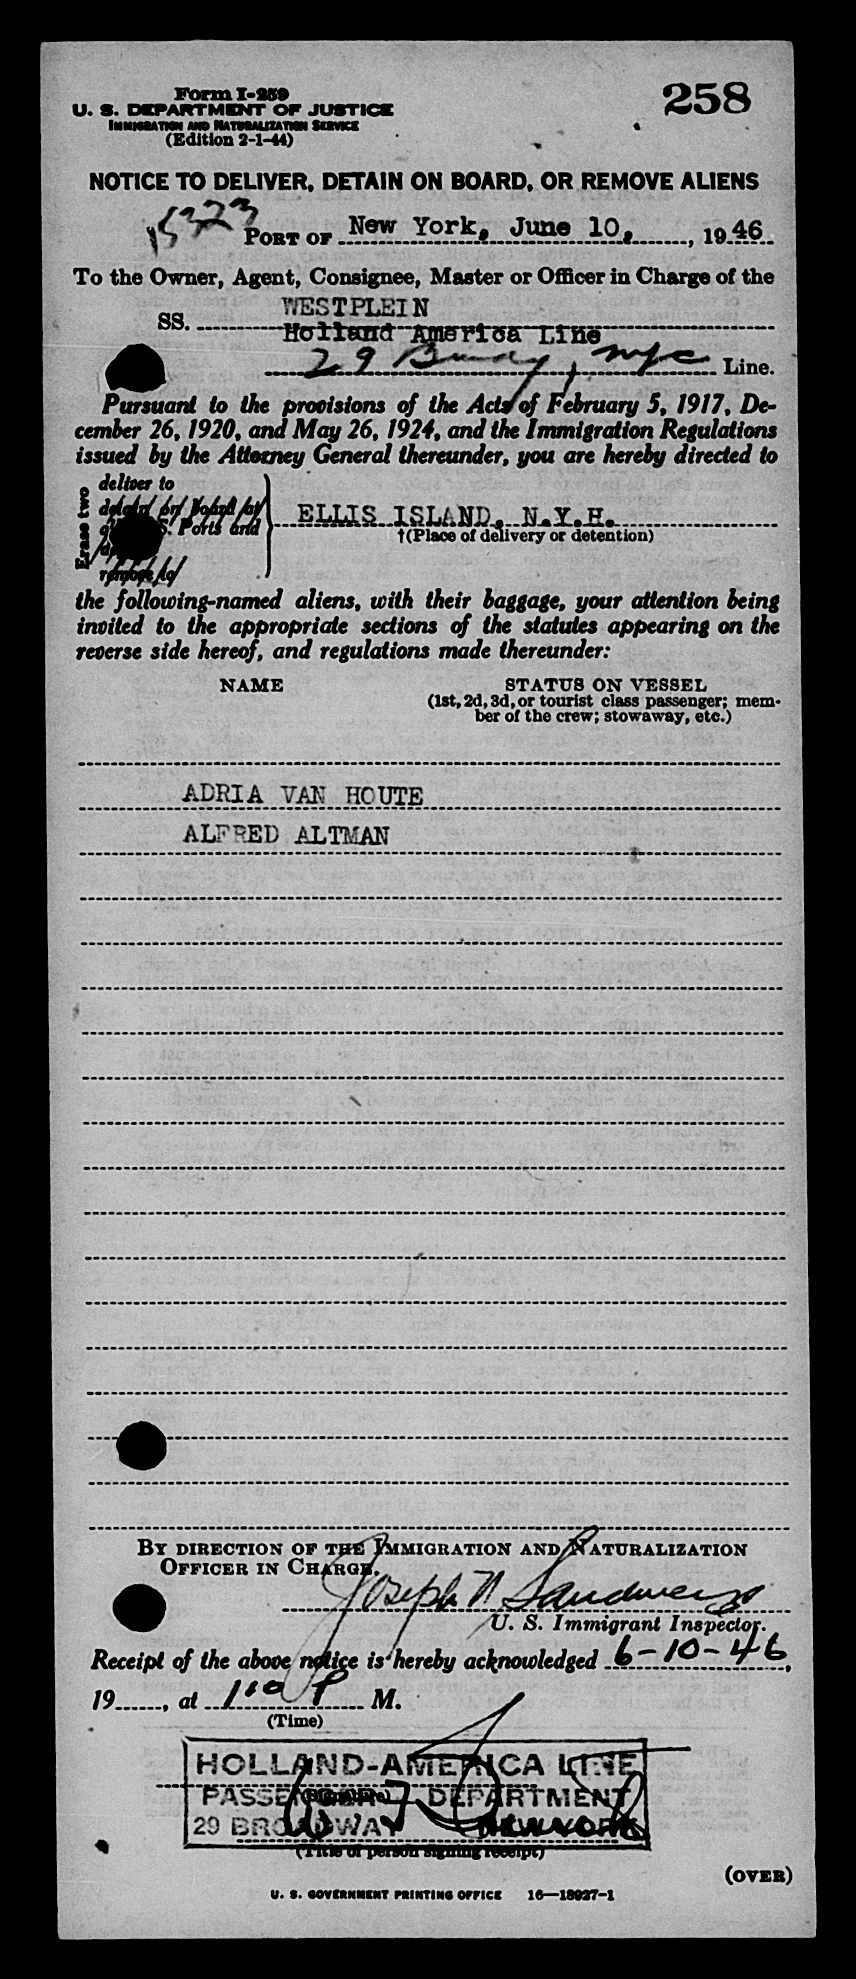 Form I-259
258
U. S. DEPARTMENT OF JUSTICE
IMMIGRATION AND NATURALIZATION SERVICE
(Edition 2-1-44)
NOTICE TO DELIVER, DETAIN ON BOARD, OR REMOVE ALIENS
15323
PORT OF New York, June 10, , 1946
To the Owner, Agent, Consignee, Master or Officer in Charge of the
SS. WESTPLEIN
Holland America Line
29 Bwdy, nyc Line.
Pursuant to the provisions of the Acts of February 5, 1917, De-
cember 26, 1920, and May 26, 1924, and the Immigration Regulations
issued by the Attorney General thereunder, you are hereby directed to
Erase two
deliver to
detain on board at
S. Ports and
remove to
ELLIS ISLAND, N.Y.H.
†(Place of delivery or detention)
the following-named aliens, with their baggage, your attention being
invited to the appropriate sections of the statutes appearing on the
reverse side hereof, and regulations made thereunder:
NAME STATUS ON VESSEL
(1st, 2d, 3d, or tourist class passenger; mem-
ber of the crew; stowaway, etc.)
ADRIA VAN HOUTE
ALFRED ALTMAN
BY DIRECTION OF THE IMMIGRATION AND NATURALIZATION
OFFICER IN CHARGE.
Joseph N
U. S. Immigrant Inspector.
Receipt of the above notice is hereby acknowledged 6-10-46,
19......, at 1:10 P M.
(Time)
HOLLAND-AMERICA LINE
PASSENGER DEPARTMENT
29 BROADWAY NEW YORK
(Title of person signing receipt)
(OVER)
U. S. GOVERNMENT PRINTING OFFICE 16—18927-1